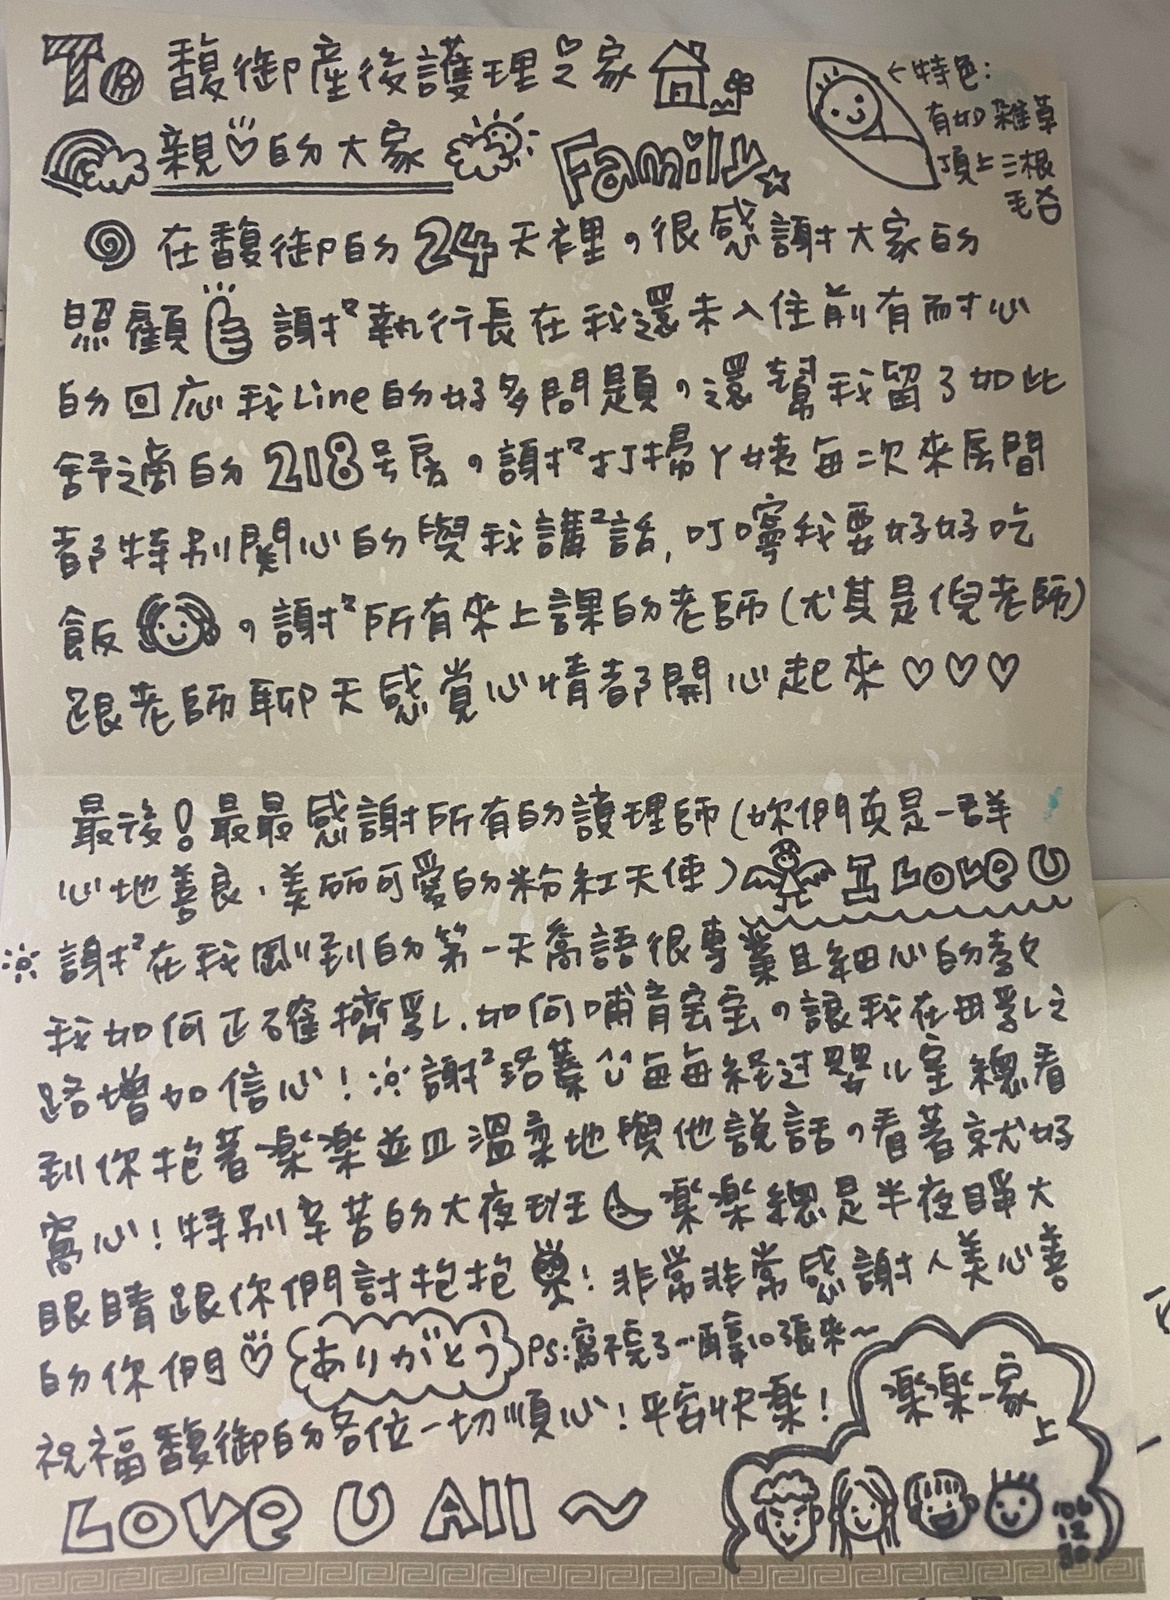 To 馥御產後護理之家
親的大家 Family
←特色:
有如雜草
頂上三根
毛
在馥御的24天裡，很感謝大家的
照顧 謝²執行長在我還未入住前有耐心
的回應我Line的好多問題，還幫我留了如此
舒適的218号房，謝²打掃丫姨每次來房間
都特別關心的與我講²話,叮嚀我要好好吃
飯，謝²所有來上課的老師(尤其是倪老師)
跟老師聊天感覺心情都開心起來♡♡♡
最後!最最感謝所有的護理師(妳們真是一群
心地善良、美丽可愛的粉紅天使) I Love U
謝²在我剛到的第一天喬語很專業且細心的教
我如何正確擠乳、如何哺育宝宝，讓我在母乳之
路增加信心! 謝²珞蓁 每每経过嬰儿室總看
到你抱著楽楽並且溫柔地與他說話，看著就好
窩心!特別辛苦的大夜班 楽楽總是半夜睜大
眼睛跟你們討抱抱!非常非常感謝人美心善
的你們♡ ありがとう PS:寫不完了…再拿10張來~
祝福馥御的各位一切順心!平安快楽!
楽楽一家
上
Love U All ~
106
12
30